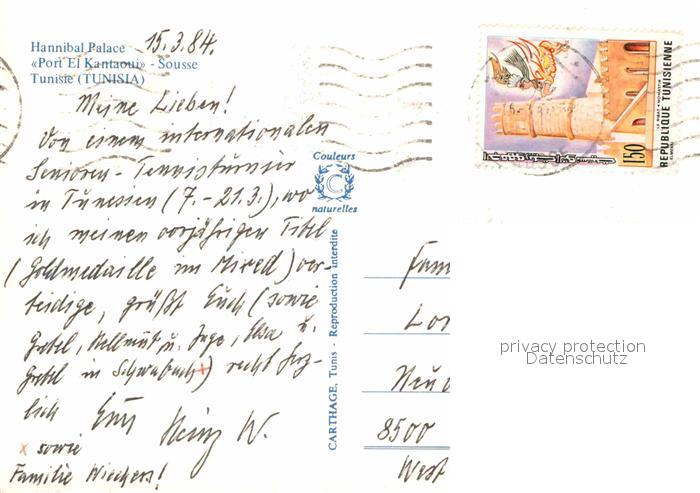 Hannibal Palace 15.3.84.
«Port El Kantaoui» - Sousse
Tunisie (TUNISIA)
Meine Lieben!
Von einem internationalen
Senioren-Tennisturnier
in Tunesien (7.-21.3.), wo
ich meinen vorjährigen Titel
(Goldmedaille im Mixed) ver-
teidige, grüßt Euch (sowie
Gretel, Hellmut u. Inge, Elsa u.
Gretel in Schwabach x) recht herz-
lich Euer Heinz W.
x sowie
Familie Wiechers!
Couleurs
C
naturelles
CARTHAGE, Tunis - Reproduction Interdite
REPUBLIQUE TUNISIENNE
150
Fam
Lor
Neu
8500
West
privacy protection
Datenschutz